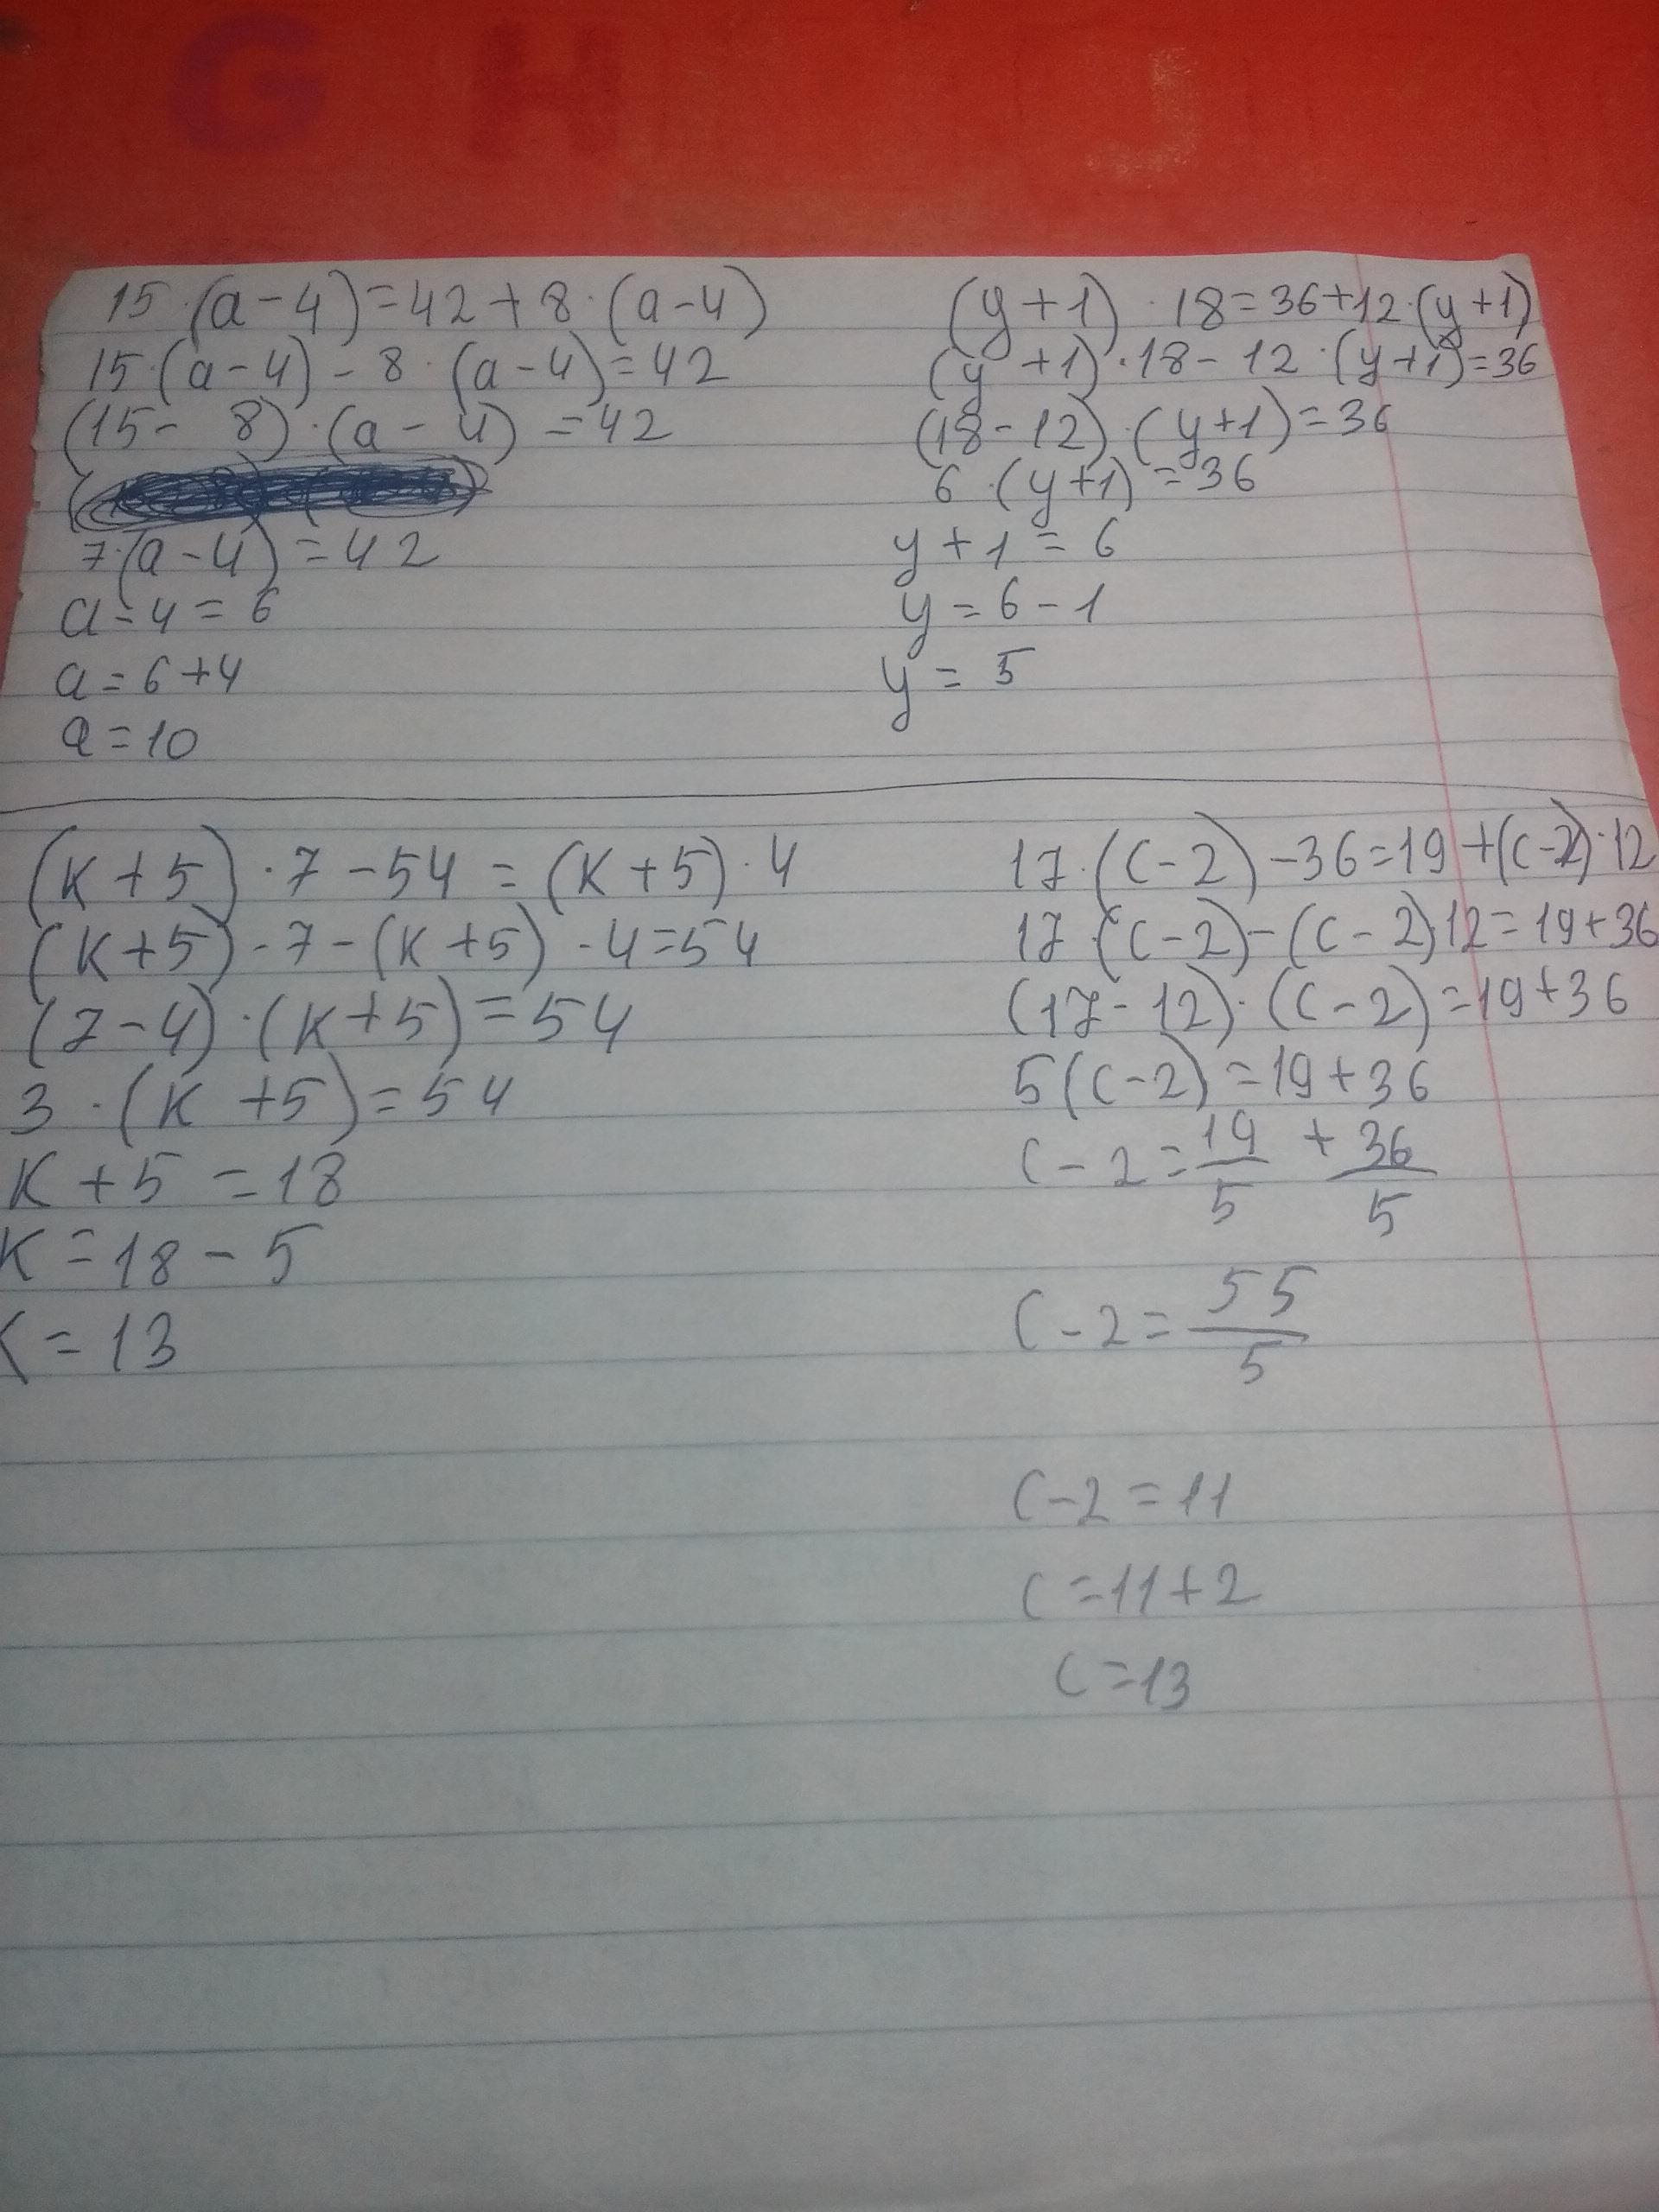 G H J
15·(a-4)=42+8·(a-4)
15·(a-4)-8·(a-4)=42
(15-8)·(a-4)=42
7·(a-4)=42
a-4=6
a=6+4
a=10
(y+1)·18=36+12·(y+1)
(y+1)·18-12·(y+1)=36
(18-12)·(y+1)=36
6·(y+1)=36
y+1=6
y=6-1
y=5
(k+5)·7-54=(k+5)·4
(k+5)·7-(k+5)·4=54
(7-4)·(k+5)=54
3·(k+5)=54
k+5=18
k=18-5
k=13
17·(c-2)-36=19+(c-2)·12
17·(c-2)-(c-2)·12=19+36
(17-12)·(c-2)=19+36
5(c-2)=19+36
c-2=19/5+36/5
c-2=55/5
c-2=11
c=11+2
c=13